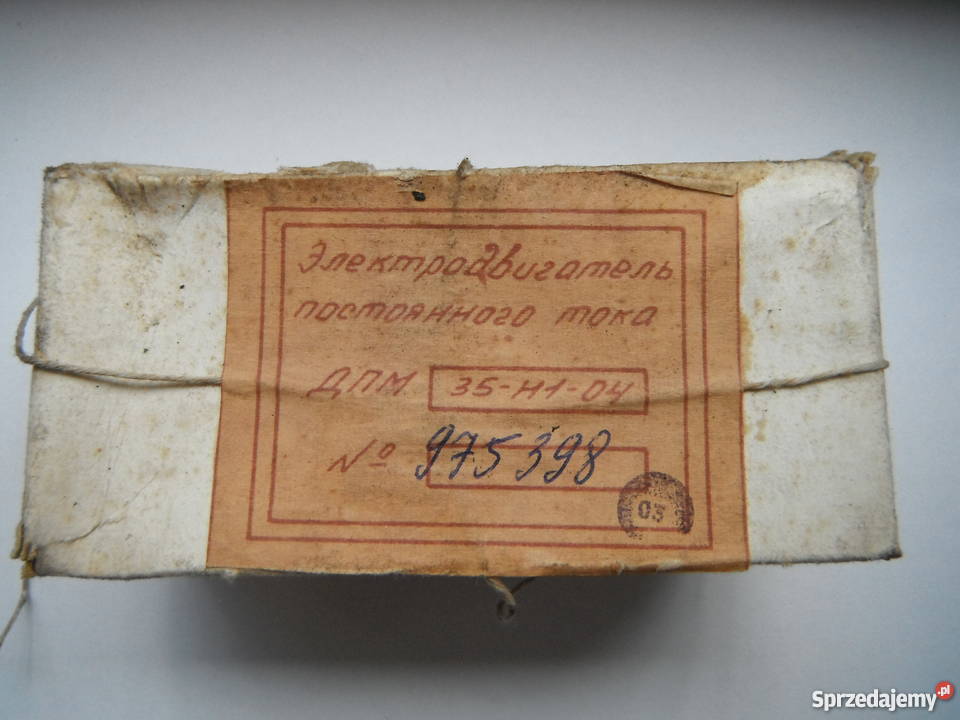 Электродвигатель
постоянного тока
ДПМ 35-Н1-04
№ 975398
03
Sprzedajemy.pl